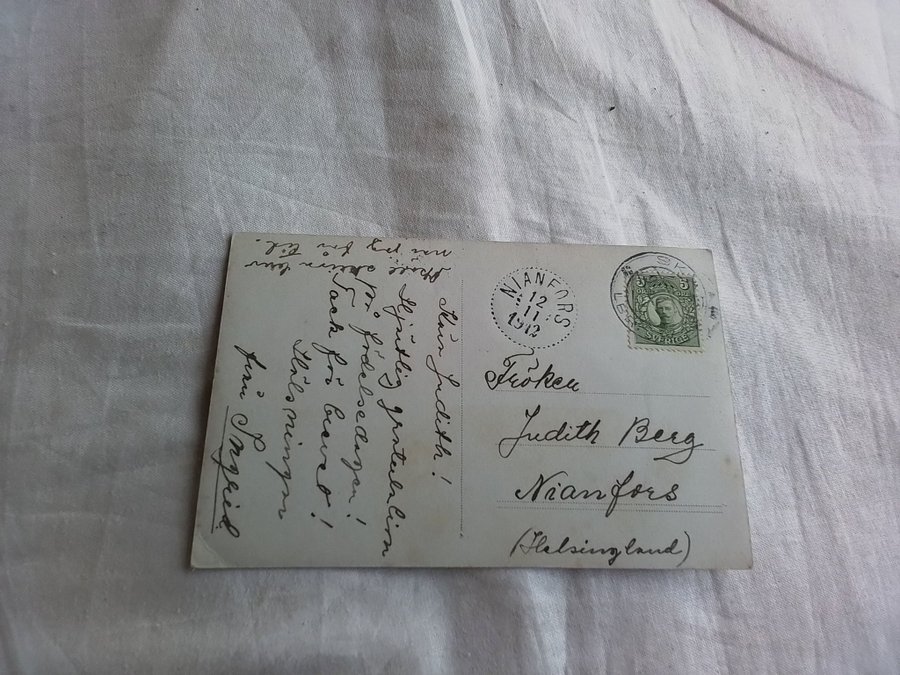 Kära Judith!
Hjärtlig gratulation
på födelsedagen!
Tack för brevet!
Hälsningar
från Ingrid
Skall skriva
när jag får tid.
NIANFORS
12
11
1912
5
SVERIGE
Fröken
Judith Berg
Nianfors
(Helsingland)